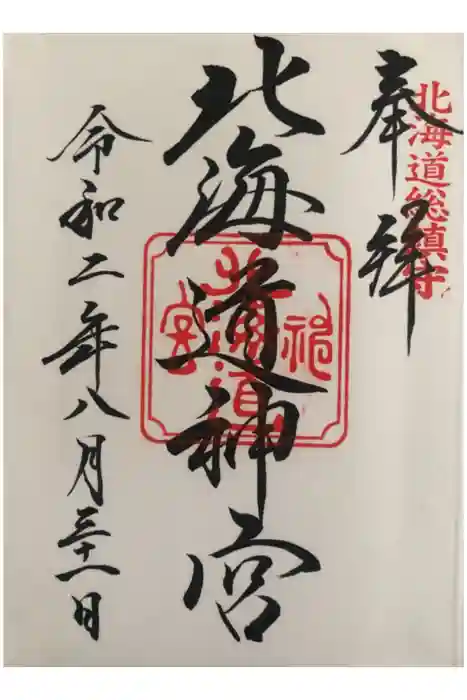 奉拝
北海道総鎮守
北海道神宮
北海道神宮
令和二年八月三十一日